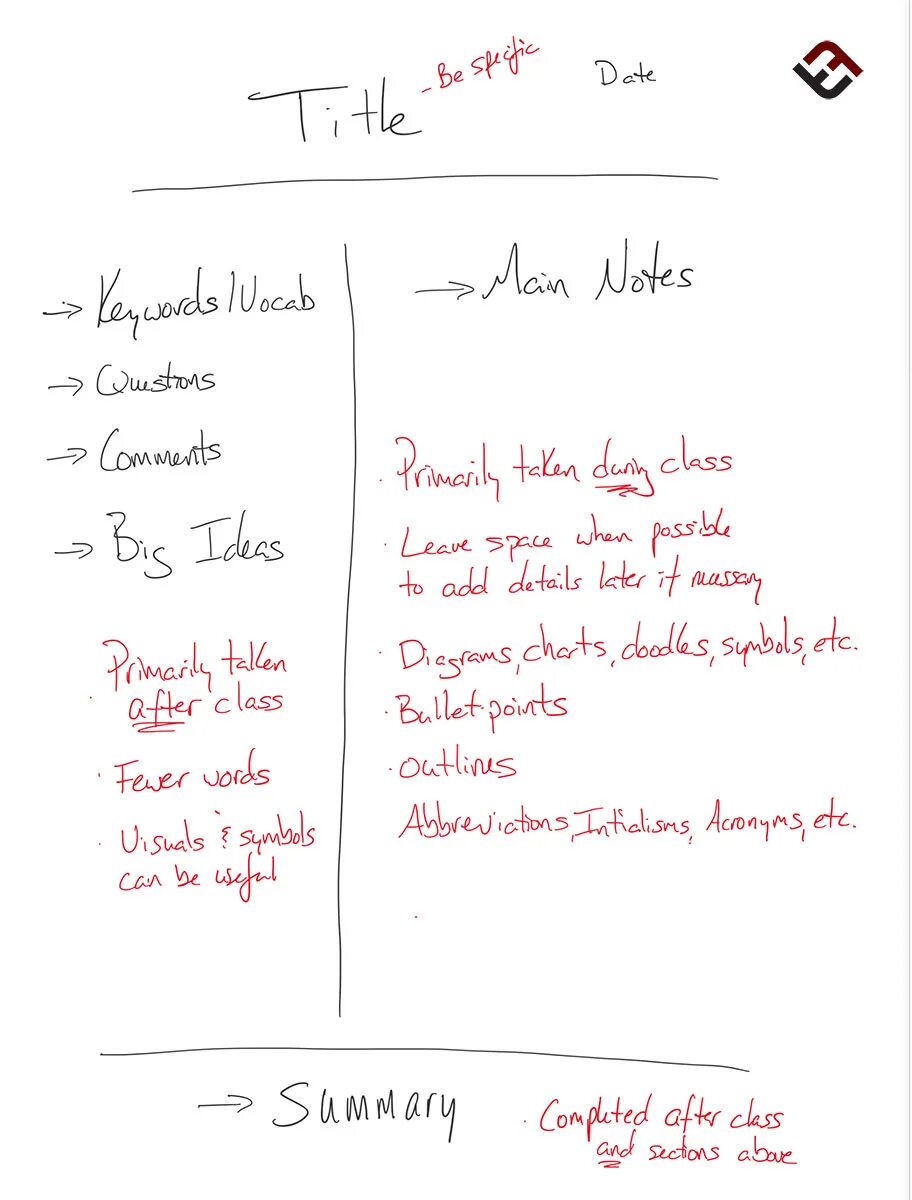 Title
- Be specific
Date
→ Keywords/Vocab
→ Questions
→ Comments
→ Big Ideas
· Primarily taken
after class
· Fewer words
· Visuals & symbols
can be useful
→ Main Notes
· Primarily taken during class
· Leave space when possible
to add details later if necessary
· Diagrams, charts, doodles, symbols, etc.
· Bullet-points
· Outlines
Abbreviations, Intialisms, Acronyms, etc.
→ Summary
· Completed after class
and sections above